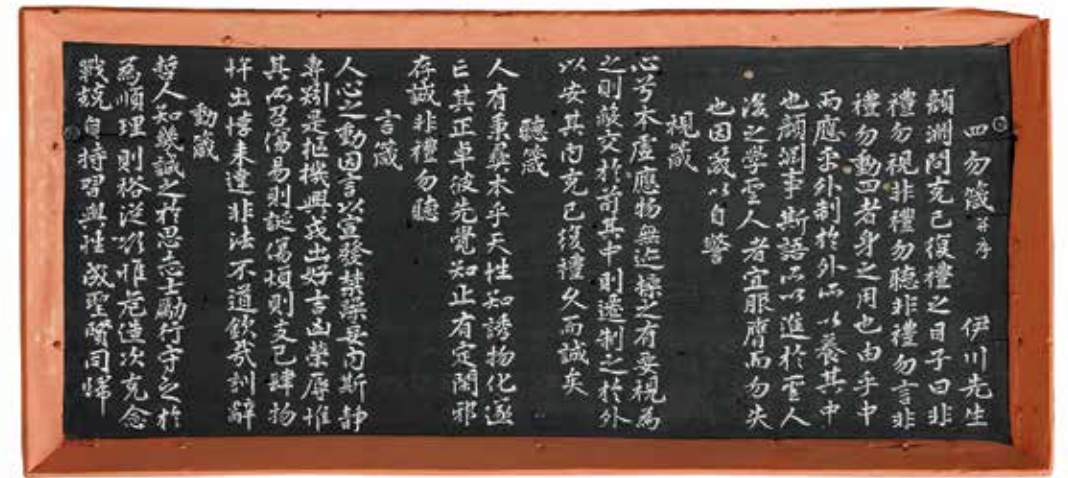 四勿箴 并序 伊川先生
顔淵問克己復禮之目子曰非
禮勿視非禮勿聽非禮勿言非
禮勿動四者身之用也由乎中
而應乎外制於外所以養其中
也顔淵事斯語所以進於聖人
後之學聖人者宜服膺而勿失
也因箴以自警
視箴
心兮本虛應物無迹操之有要視爲
之則蔽交於前其中則遷制之於外
以安其內克己復禮久而誠矣
聽箴
人有秉彝本乎天性知誘物化遂
亡其正卓彼先覺知止有定閑邪
存誠非禮勿聽
言箴
人心之動因言以宣發禁躁妄內斯靜
專矧是樞機興戎出好吉凶榮辱惟
其所召傷易則誕傷煩則支己肆物
忤出悖來違非法不道欽哉訓辭
動箴
哲人知幾誠之於思志士勵行守之於
爲順理則裕從欲惟危造次克念
戰兢自持習與性成聖賢同歸